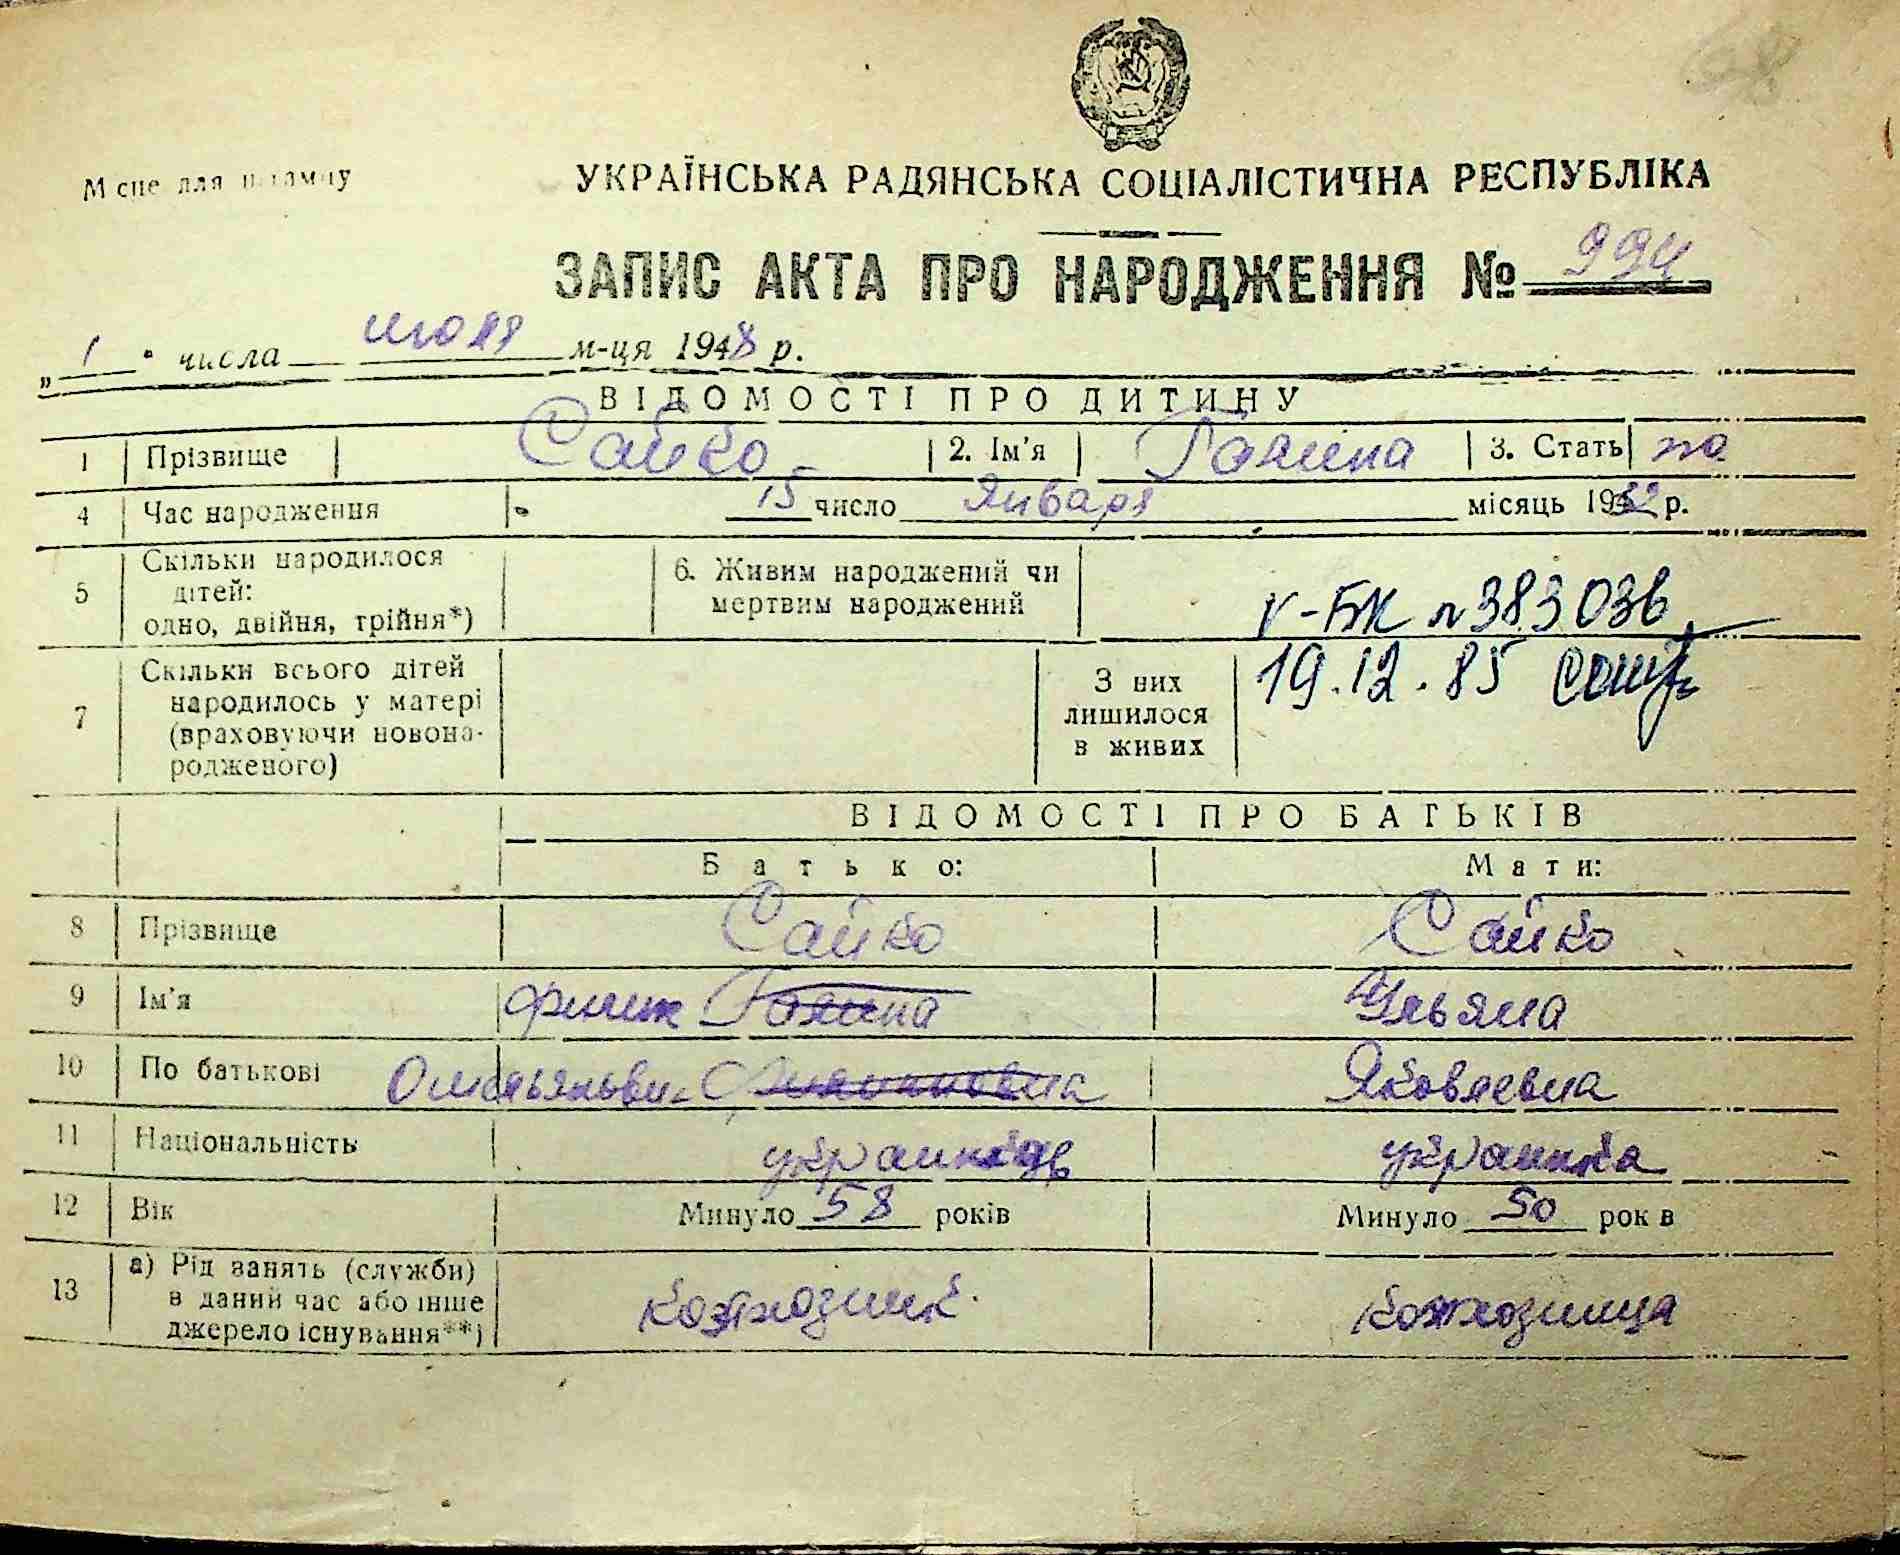 Місце для штампу
УКРАЇНСЬКА РАДЯНСЬКА СОЦІАЛІСТИЧНА РЕСПУБЛІКА
ЗАПИС АКТА ПРО НАРОДЖЕННЯ № 994
„ 1 " числа июля м-ця 1948 р.
ВІДОМОСТІ ПРО ДИТИНУ
1 Прізвище Сайко 2. Ім'я Галина 3. Стать
4 Час народження 15 число Января місяць 19 р.
5 Скільки народилося дітей: одно, двійня, трійня*) 6. Живим народжений чи мертвим народжений
V-БК № 383036
7 Скільки всього дітей народилось у матері (враховуючи новонародженого) З них лишилося в живих
19.12.85
ВІДОМОСТІ ПРО БАТЬКІВ
Батько: Мати:
8 Прізвище Сайко Сайко
9 Ім'я Филип Галина Ульяна
10 По батькові Омельянови Филипповна Яковлевна
11 Національність украинка
12 Вік Минуло 58 років Минуло 50 років
13 а) Рід занять (служби) в даний час або інше джерело існування**) колхозник колхозница